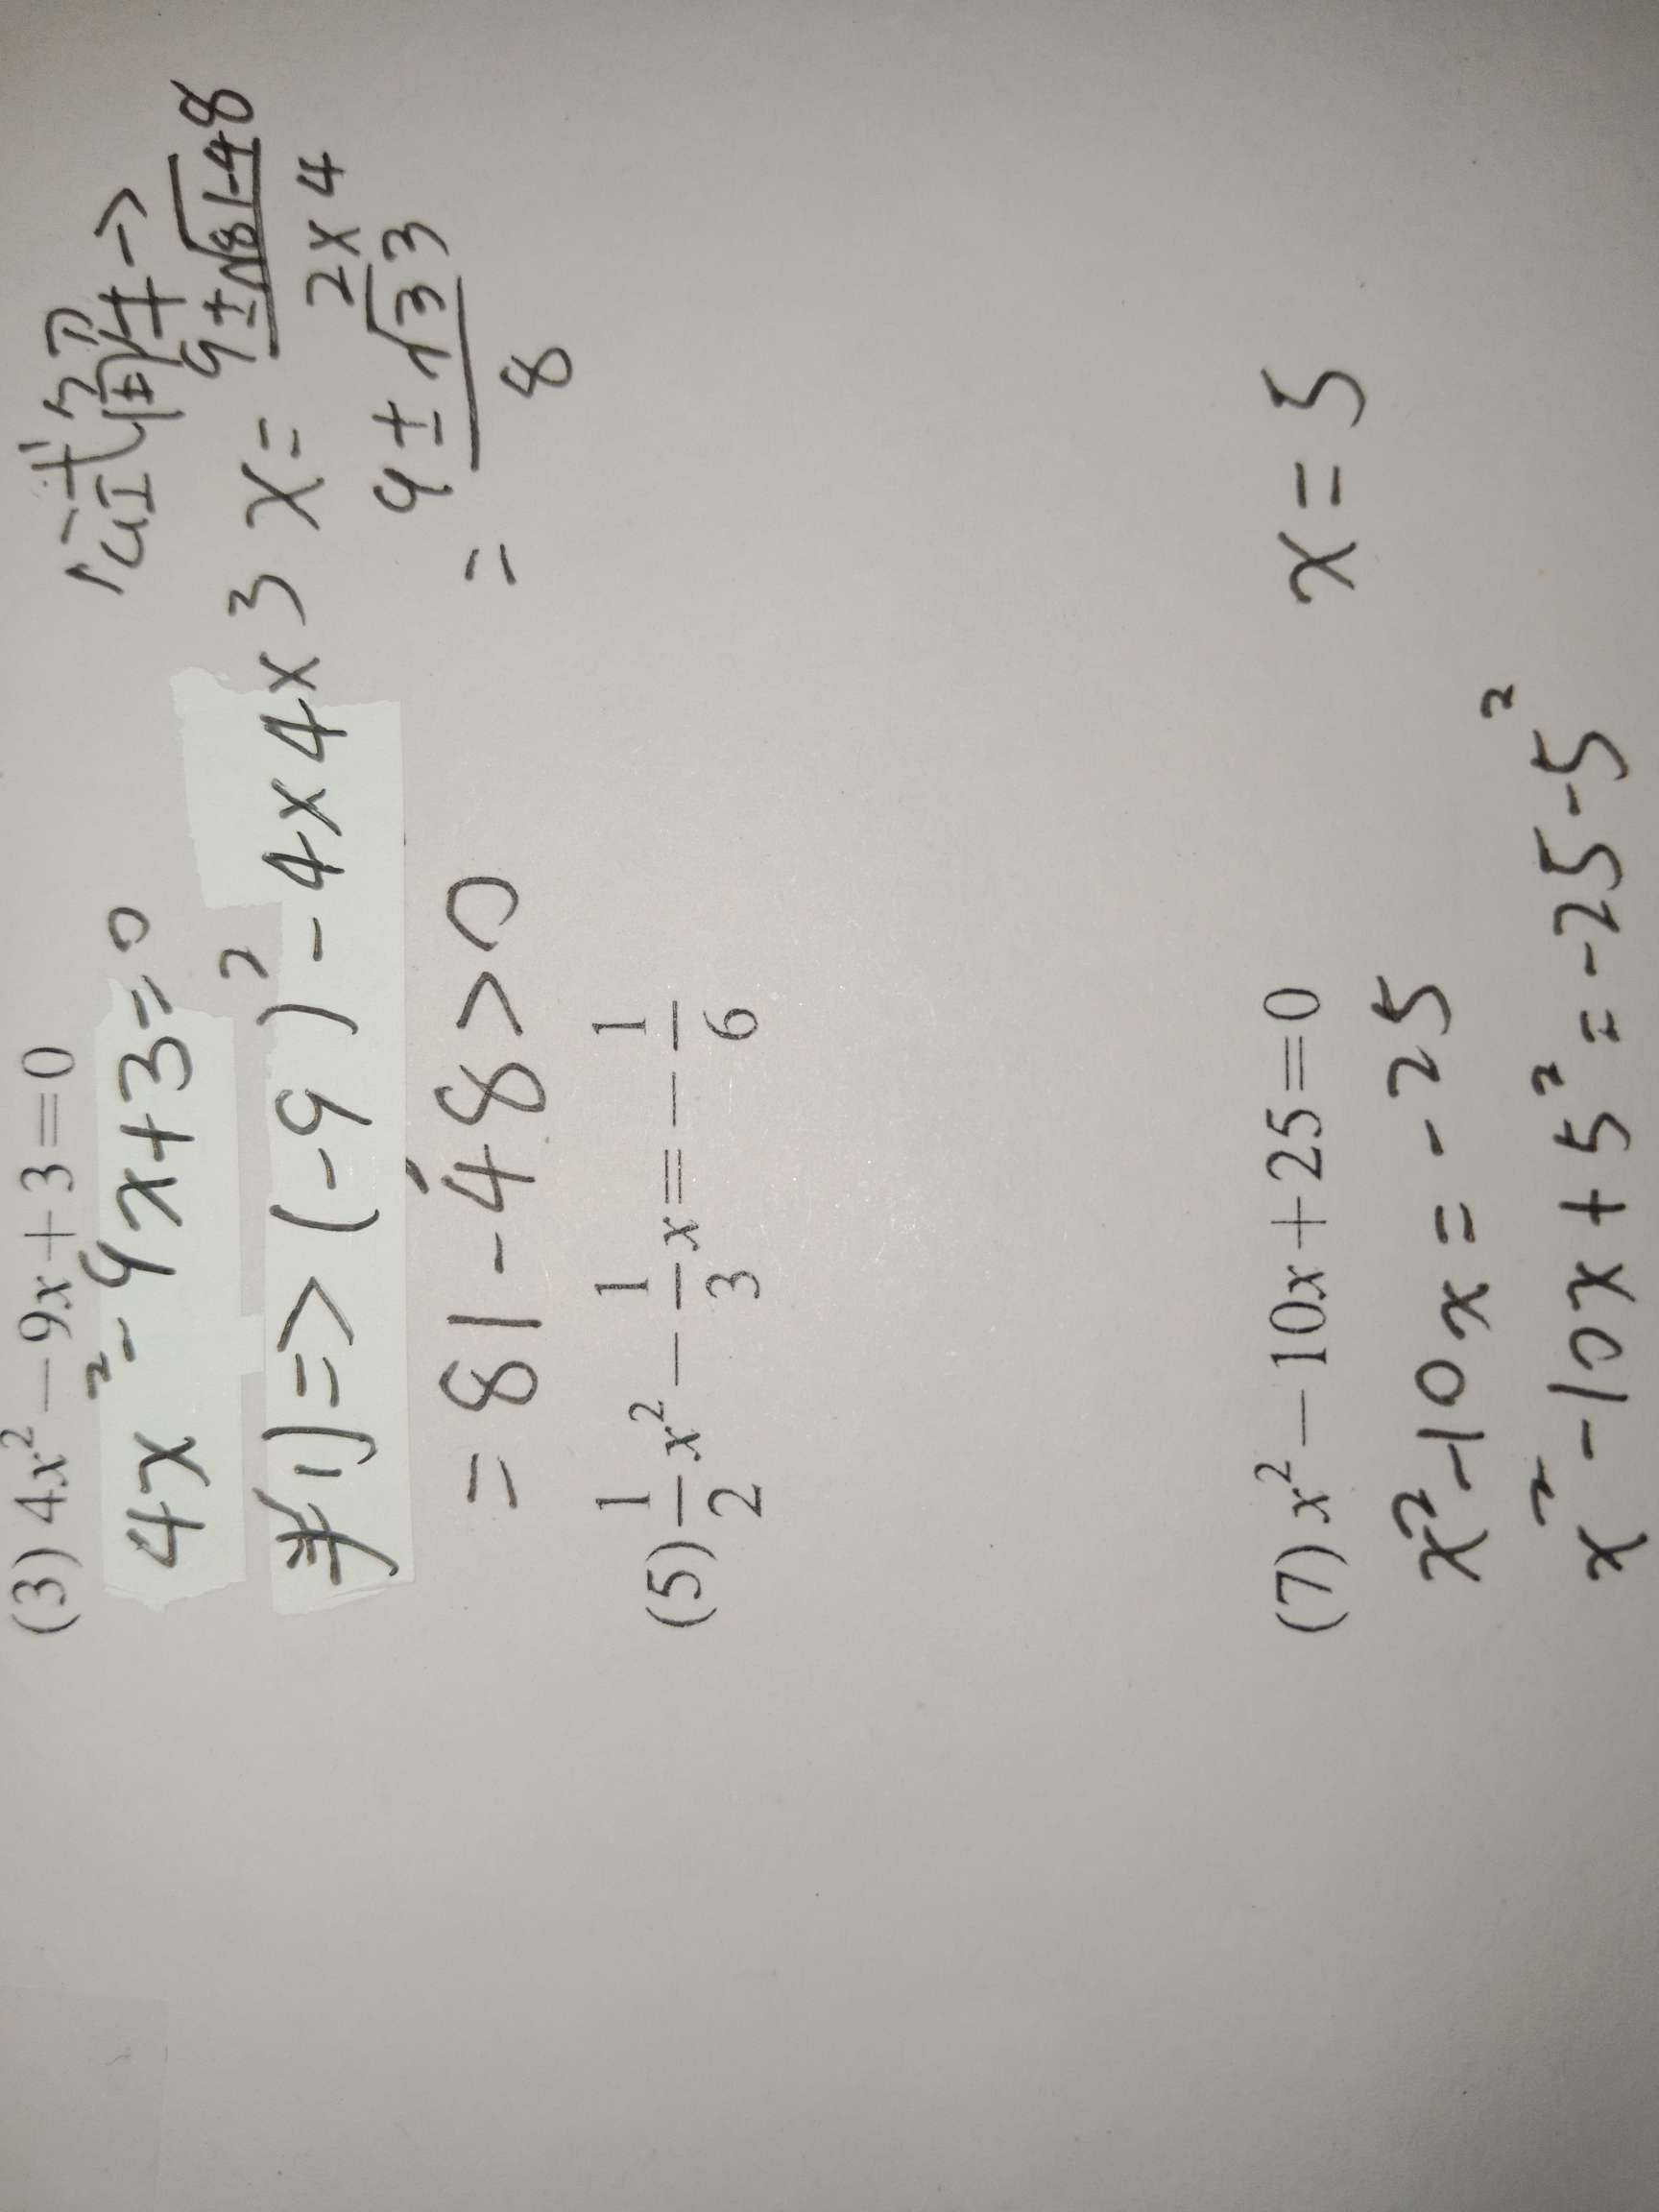 (3) 4x²－9x＋3＝0
4x²-9x+3=0
判 => (-9)²-4×4×3
=81-48>0
公式解→
x= 9±√81-48 / 2×4
= 9±√33 / 8
(5) 1/2 x²－1/3 x＝－1/6
(7) x²－10x＋25＝0
x²-10x=-25
x²-10x+5²=-25-5²
x=5